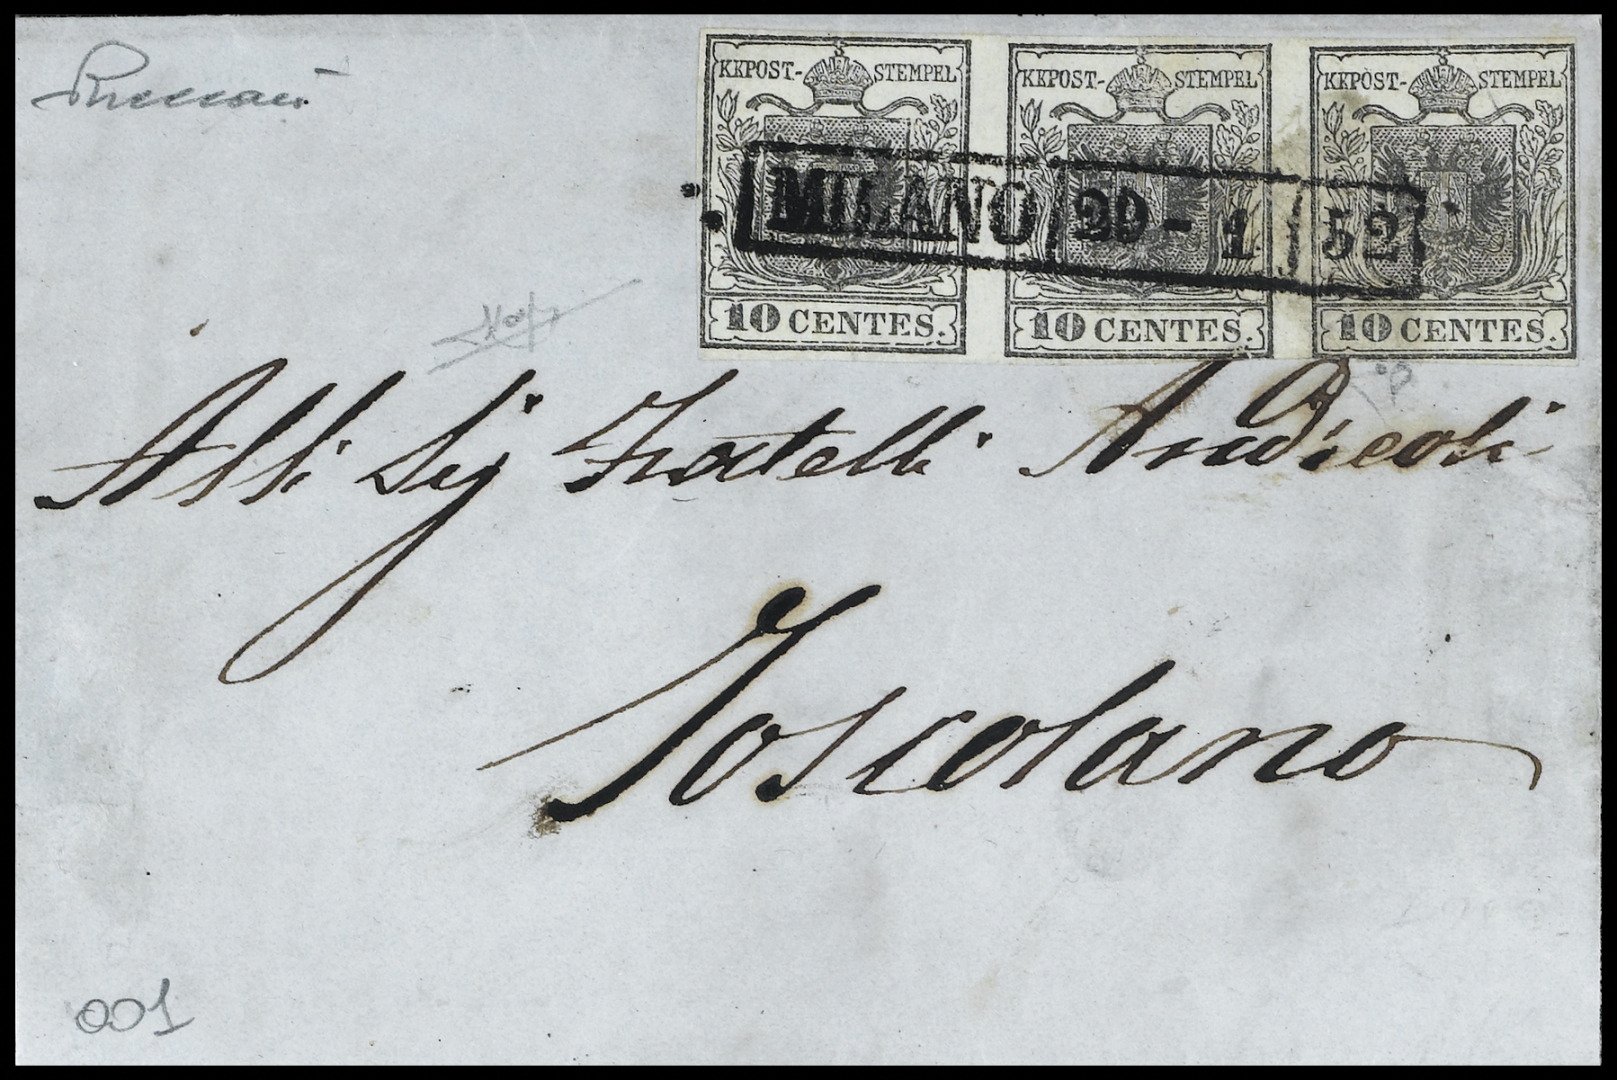 KKPOST-STEMPEL KKPOST-STEMPEL KKPOST-STEMPEL
MILANO 29 - 1 52
10 CENTES. 10 CENTES. 10 CENTES.
Alli Sij Fratelli Andreoli
Toscolano
001